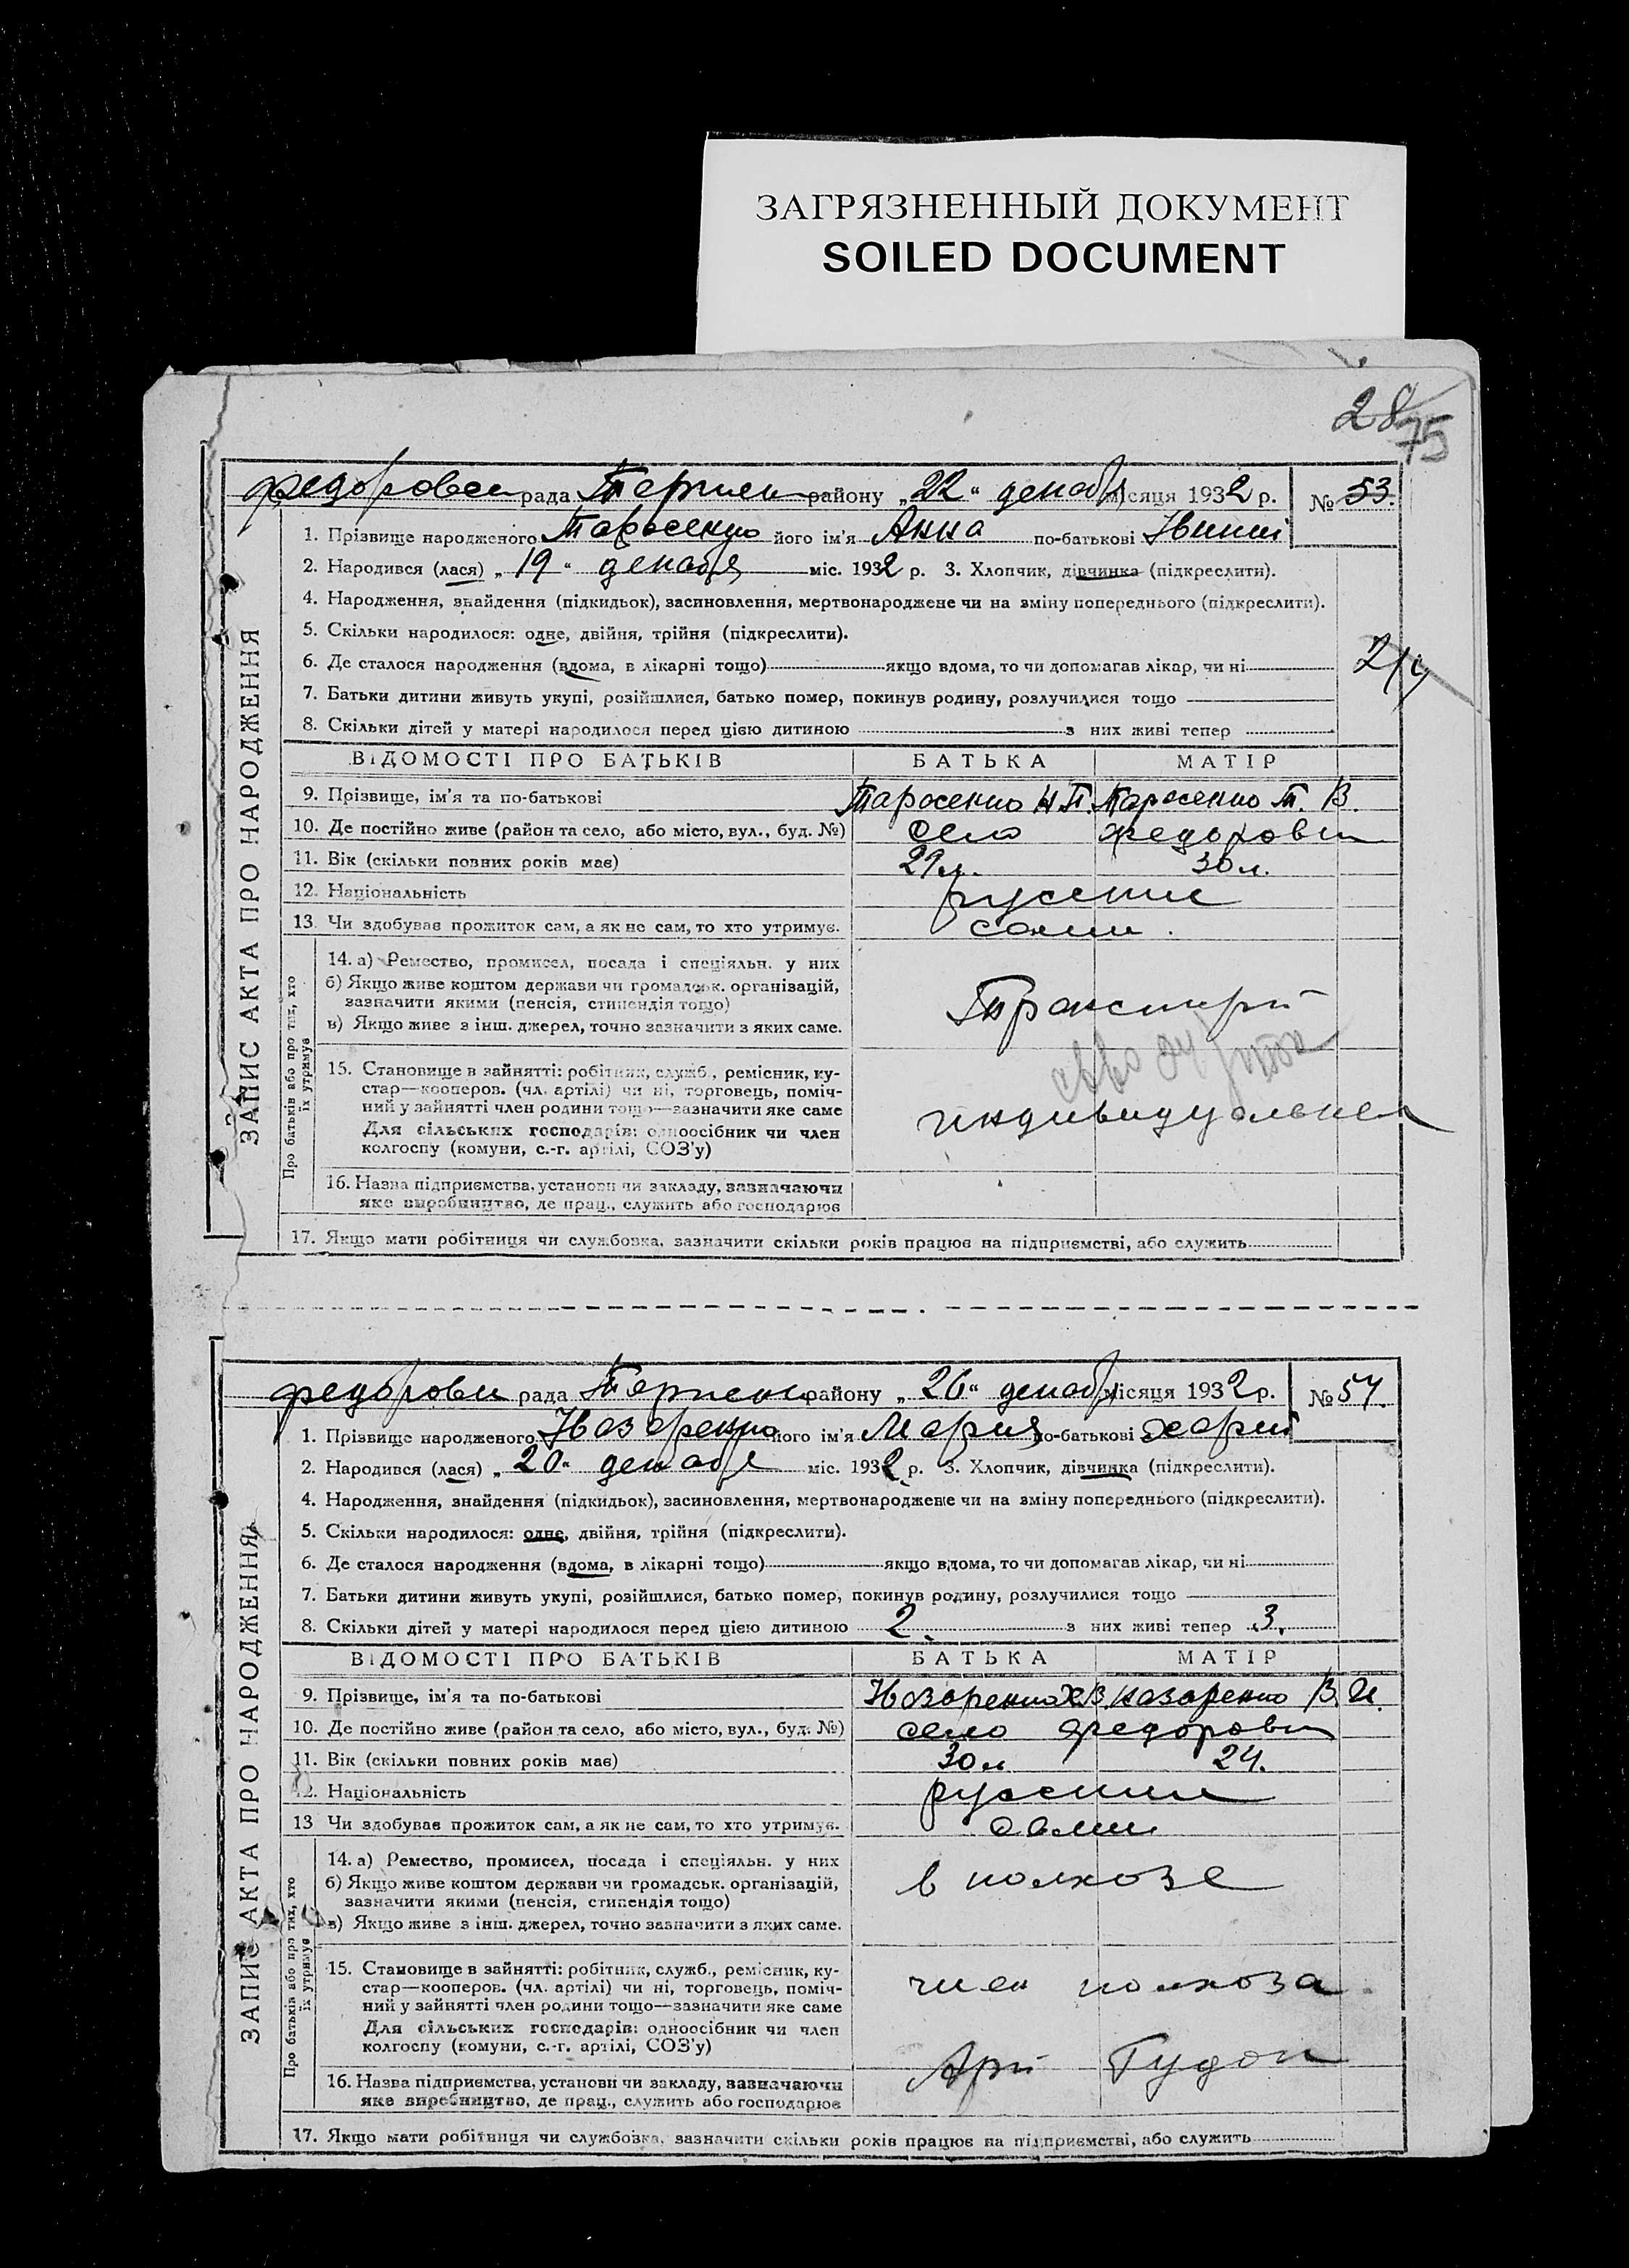 ЗАГРЯЗНЕННЫЙ ДОКУМЕНТ
SOILED DOCUMENT
28
75
ЗАПИС АКТА ПРО НАРОДЖЕННЯ
рада району „22“ декабря місяця 1932 р. № 53.
1. Прізвище народженого Тарасенко його ім'я Анна по-батькові
2. Народився (лася) „19“ декабря міс. 1932 р. 3. Хлопчик, дівчинка (підкреслити).
4. Народження, знайдення (підкидьок), засиновлення, мертвонароджене чи на зміну попереднього (підкреслити).
5. Скільки народилося: одне, двійня, трійня (підкреслити).
6. Де сталося народження (вдома, в лікарні тощо) якщо вдома, то чи допомагав лікар, чи ні
7. Батьки дитини живуть укупі, розійшлися, батько помер, покинув родину, розлучилися тощо
8. Скільки дітей у матері народилося перед цією дитиною з них живі тепер
ВІДОМОСТІ ПРО БАТЬКІВ БАТЬКА МАТІР
9. Прізвище, ім'я та по-батькові Тарасенко И П. Тарасенко Т. В.
10. Де постійно живе (район та село, або місто, вул., буд. №) село Федоровка
11. Вік (скільки повних років має) 29 л. 30 л.
12. Національність русские
13. Чи здобував прожиток сам, а як не сам, то хто утримує. сами.
Про батьків або про тих, хто їх утримує
14. а) Ремество, промисел, посада і спеціяльн. у них
б) Якщо живе коштом держави чи громадськ. організацій,
зазначити якими (пенсія, стипендія тощо)
в) Якщо живе з інш. джерел, точно зазначити з яких саме.
15. Становище в зайнятті: робітник, служб., ремісник, ку-
стар—кооперов. (чл. артілі) чи ні, торговець, поміч-
ний у зайнятті член родини тощо—зазначити яке саме
Для сільських господарів: одноосібник чи член
колгоспу (комуни, с.-г. артілі, СОЗ'у)
16. Назва підприємства, установи чи закладу, зазначаючи
яке виробництво, де прац., служить або господарює
17. Якщо мати робітниця чи службовка, зазначити скільки років працює на підприємстві, або служить
ЗАПИС АКТА ПРО НАРОДЖЕННЯ
рада району „26“ декабря місяця 1932 р. № 54.
1. Прізвище народженого Назаренко його ім'я Мария по-батькові
2. Народився (лася) „20“ декабря міс. 1932 р. 3. Хлопчик, дівчинка (підкреслити).
4. Народження, знайдення (підкидьок), засиновлення, мертвонароджене чи на зміну попереднього (підкреслити).
5. Скільки народилося: одне, двійня, трійня (підкреслити).
6. Де сталося народження (вдома, в лікарні тощо) якщо вдома, то чи допомагав лікар, чи ні
7. Батьки дитини живуть укупі, розійшлися, батько помер, покинув родину, розлучилися тощо
8. Скільки дітей у матері народилося перед цією дитиною 2. з них живі тепер 3.
ВІДОМОСТІ ПРО БАТЬКІВ БАТЬКА МАТІР
9. Прізвище, ім'я та по-батькові Назаренко Х В. Назаренко В. И.
10. Де постійно живе (район та село, або місто, вул., буд. №) село Федоровка
11. Вік (скільки повних років має) 30 л 24.
12. Національність русские
13 Чи здобував прожиток сам, а як не сам, то хто утримує. сами
Про батьків або про тих, хто їх утримує
14. а) Ремество, промисел, посада і спеціяльн. у них
б) Якщо живе коштом держави чи громадськ. організацій, в колхозе
зазначити якими (пенсія, стипендія тощо)
в) Якщо живе з інш. джерел, точно зазначити з яких саме.
15. Становище в зайнятті: робітник, служб., ремісник, ку-
стар—кооперов. (чл. артілі) чи ні, торговець, поміч- член колхоза
ний у зайнятті член родини тощо—зазначити яке саме
Для сільських господарів: одноосібник чи член
колгоспу (комуни, с.-г. артілі, СОЗ'у)
16. Назва підприємства, установи чи закладу, зазначаючи Арт Гудок
яке виробництво, де прац., служить або господарює
17. Якщо мати робітниця чи службовка, зазначити скільки років працює на підприємстві, або служить